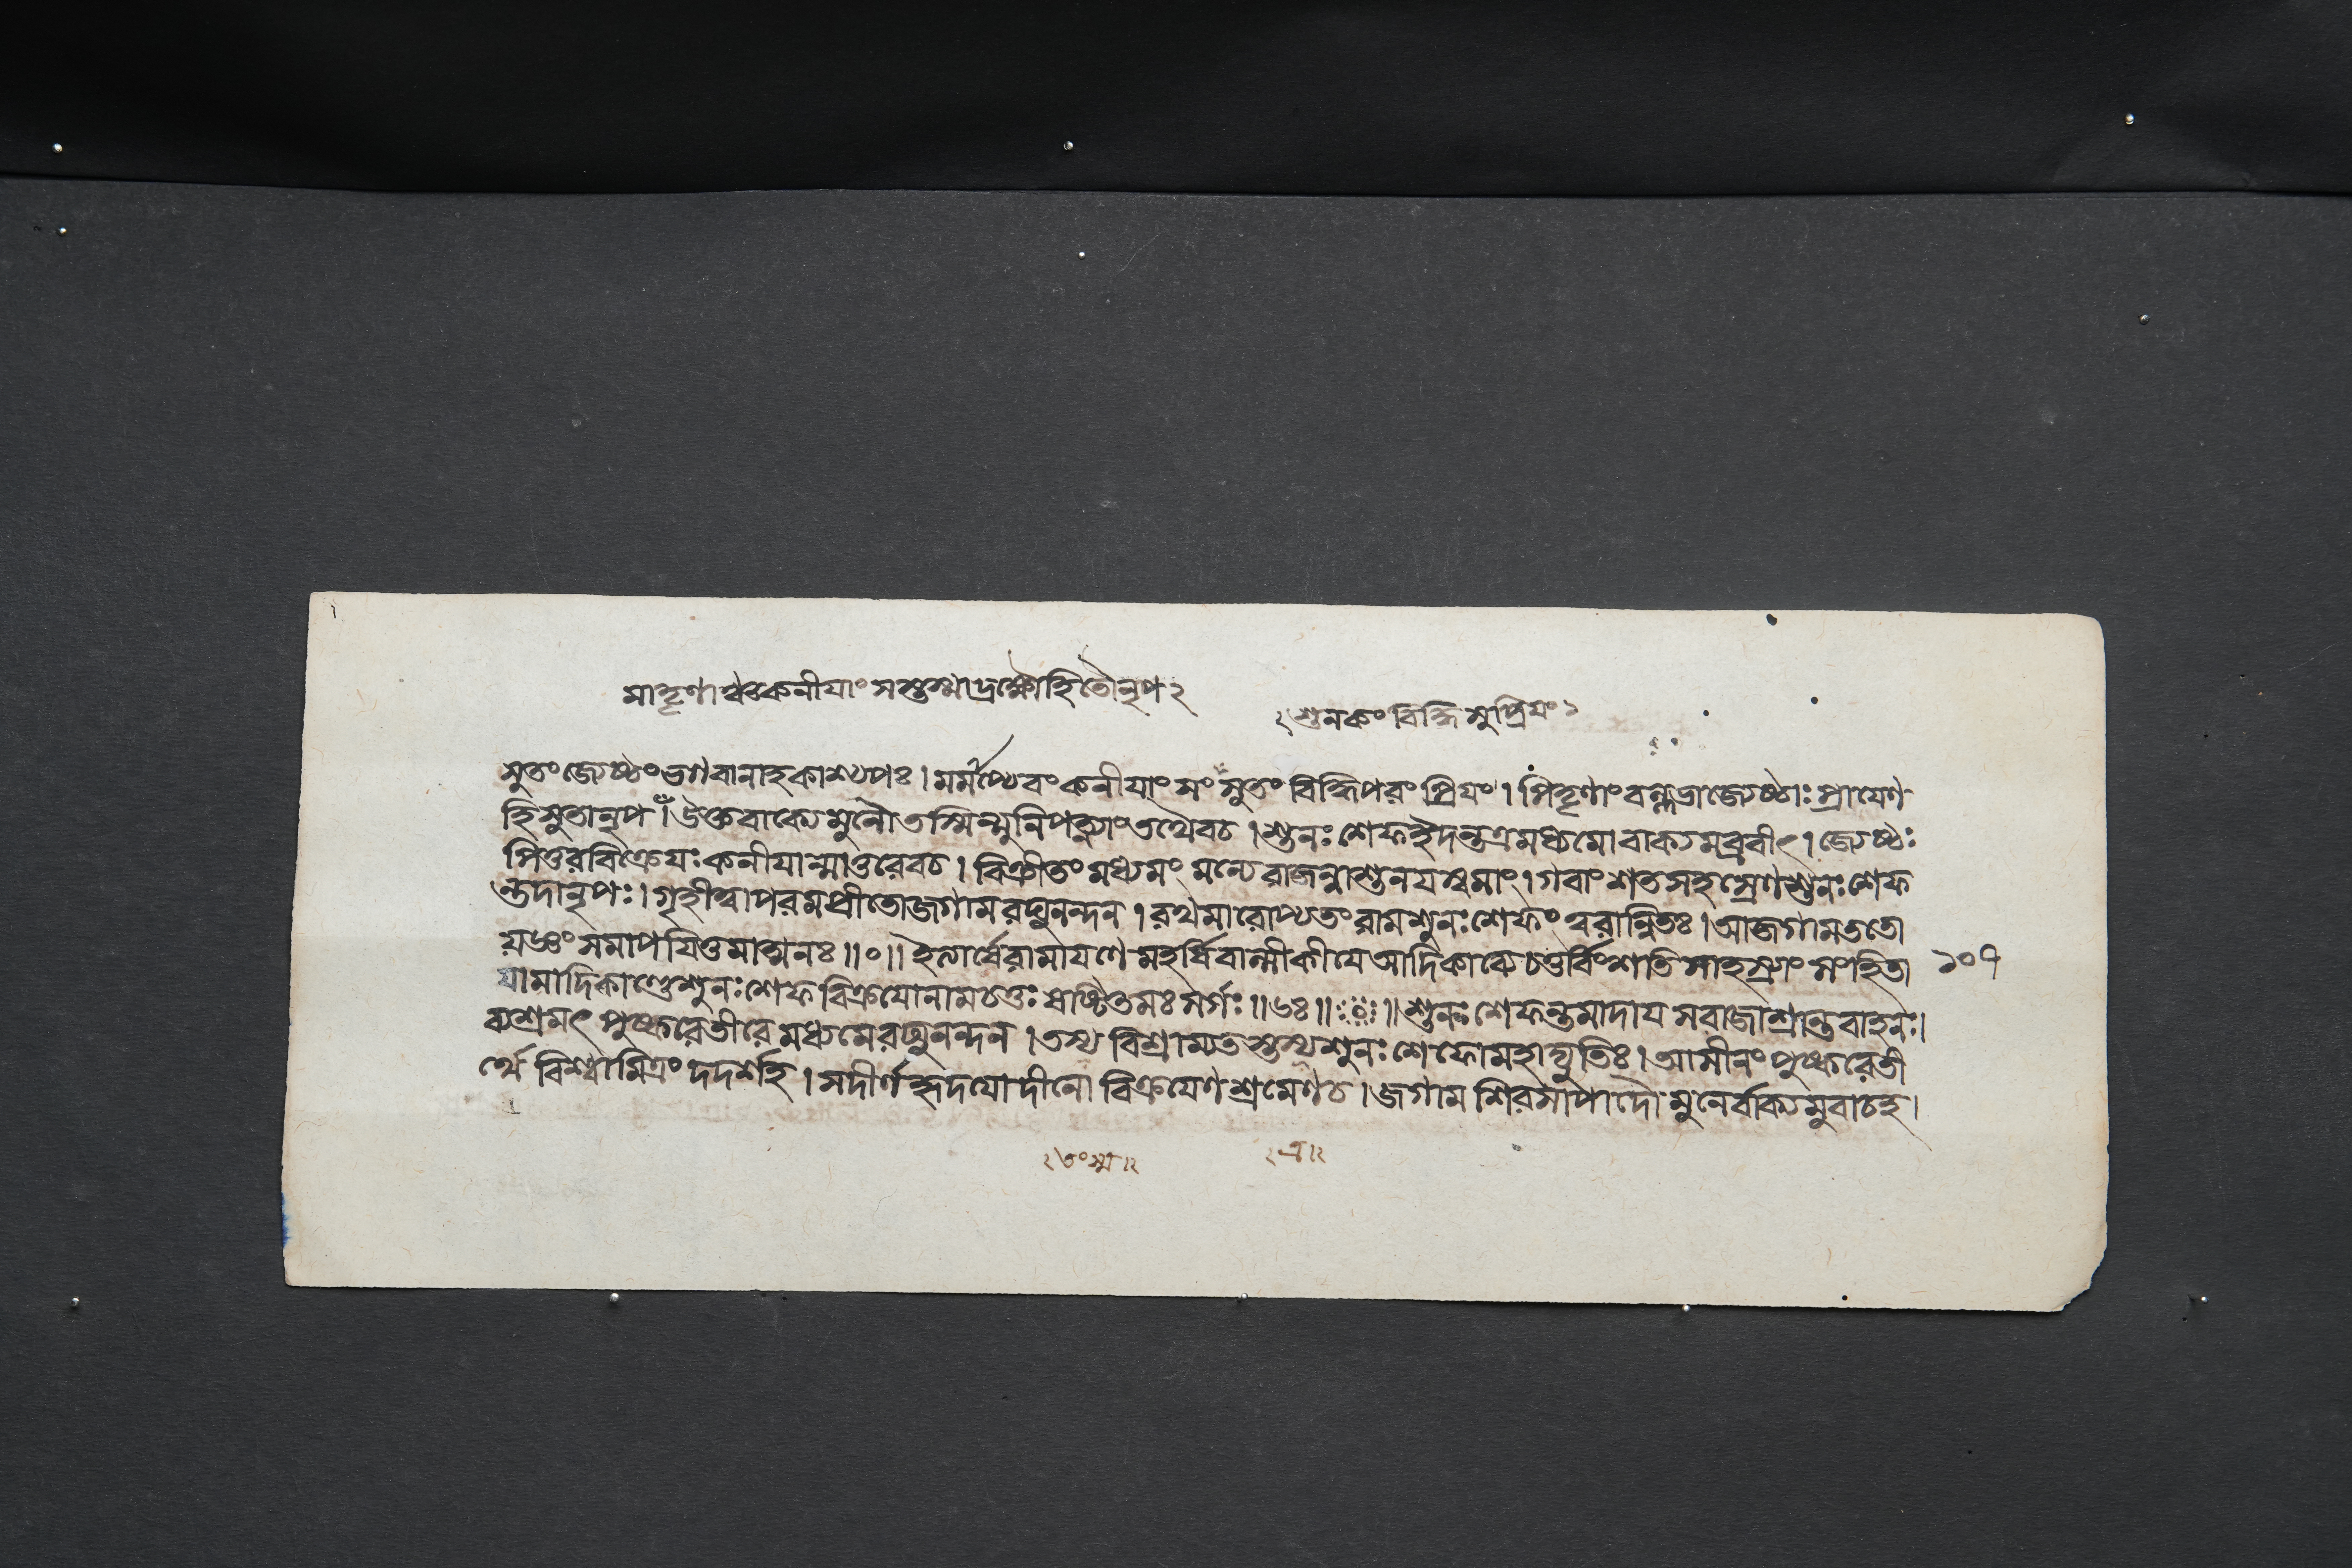 মাতৄণাঞ্চকনীযাংসস্তস্মাদ্রক্ষ্যোহিতৌনৃপ২
২শুনকংবিদ্ধিসুপ্রিযং১
সুতংজ্যেষ্ঠংভগবানাহকাশ্যপঃ। মমাপ্যেবংকনীযাংসংসুতং বিদ্ধিপরংপ্রিযং। পিতৄণাংবল্লভাজ্যেষ্ঠাঃপ্রাযেণ
হিসুতানৃপ। উক্তবাক্যেমুনৌতস্মিন্মুনিপত্ন্যাংতথৈবচ। শুনঃশেফইদন্তত্রমধ্যমোবাক্যমব্রবীৎ। জ্যেষ্ঠঃ
পিতুরবিক্রেযঃকনীযান্মাতুরেবচ। বিক্রীতংমধ্যমংমন্যেরাজন্নাশুনযস্বমাং। গবাংশতসহস্রেণশুনঃশেফ
ন্তদানৃপঃ। গৃহীত্বাপরমপ্রীতোজগামরঘুনন্দন। রথমারোপ্যতংরামশুনঃশেফংত্বরান্বিতঃ। আজগামততো
যজ্ঞংসমাপযিতুমাত্মনঃ॥০॥ ইত্যার্ষেরামাযণেমহর্ষিবাল্মীকীযেআদিকাব্যেচতুর্বিংশতিসাহস্র্যাংসংহিতা ১০৭
যামাদিকাণ্ডেশুনঃশেফবিক্রযোনামচতুঃষষ্টিতমঃসর্গঃ॥৬৪॥ ॥শুনঃশেফন্তমাদাযসরাজাশ্রান্তবাহনঃ।
ব্যশ্রমৎপুষ্করেতীরেমধ্যমেরঘুনন্দন। তস্যবিশ্রাম্যতস্তস্যশুনঃশেফোমহাদ্যুতিঃ। আসীনংপুষ্করেতী
র্থে বিশ্বামিত্রংদদর্শহ। সদীর্ণহৃদযোদীনো বিক্রযেণশ্রমেণচ। জগামশিরসাপাদৌমুনের্বাক্যমুবাচহ।